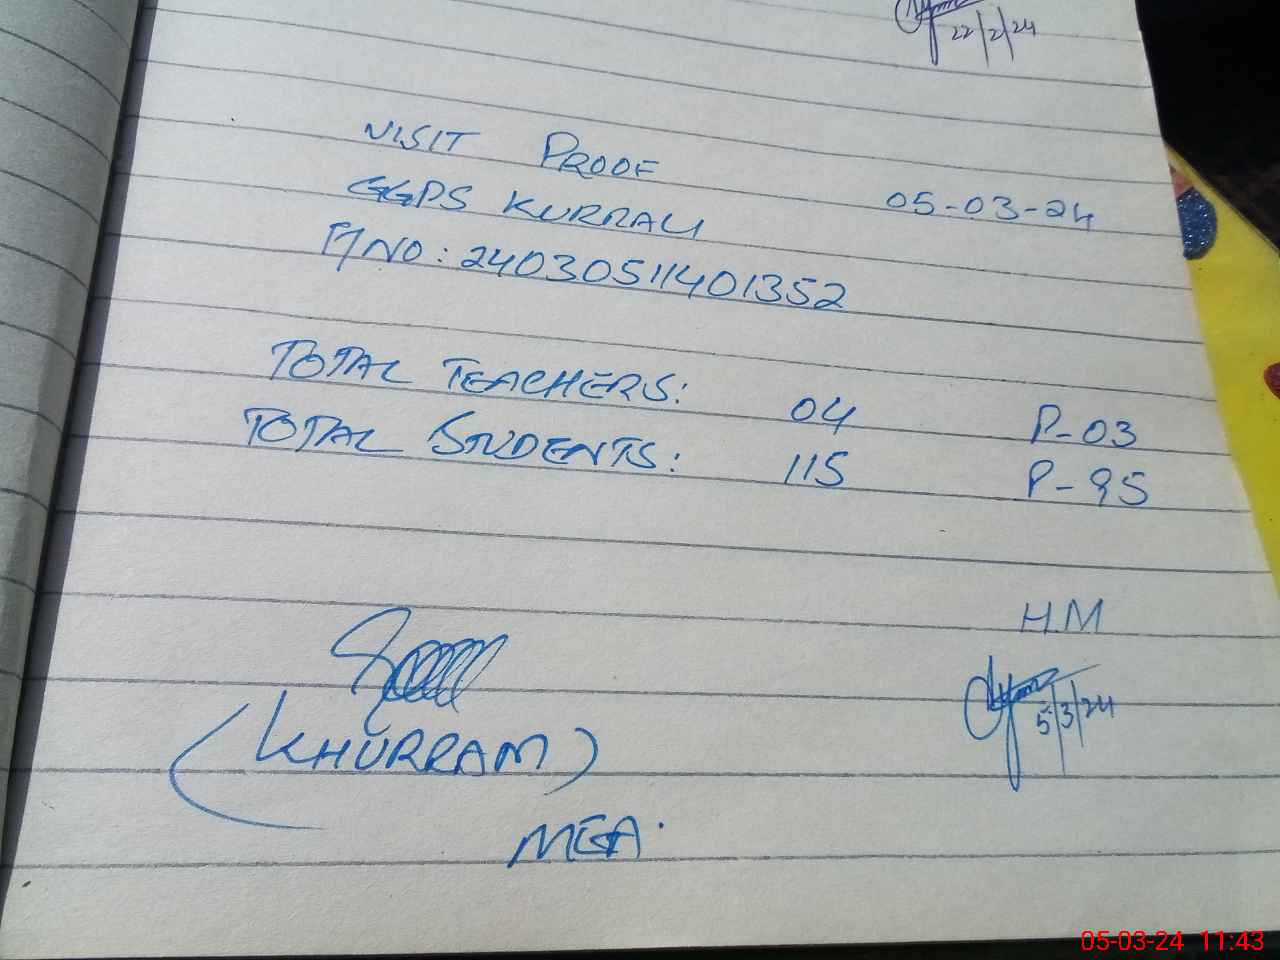 22/2/24
VISIT PROOF
GGPS KURRALI 05-03-24
F/NO: 24030511401352
TOTAL TEACHERS: 04 P-03
TOTAL STUDENTS: 115 P-95
H.M
5/3/24
(KHURRAM)
MEA.
05-03-24 11:43